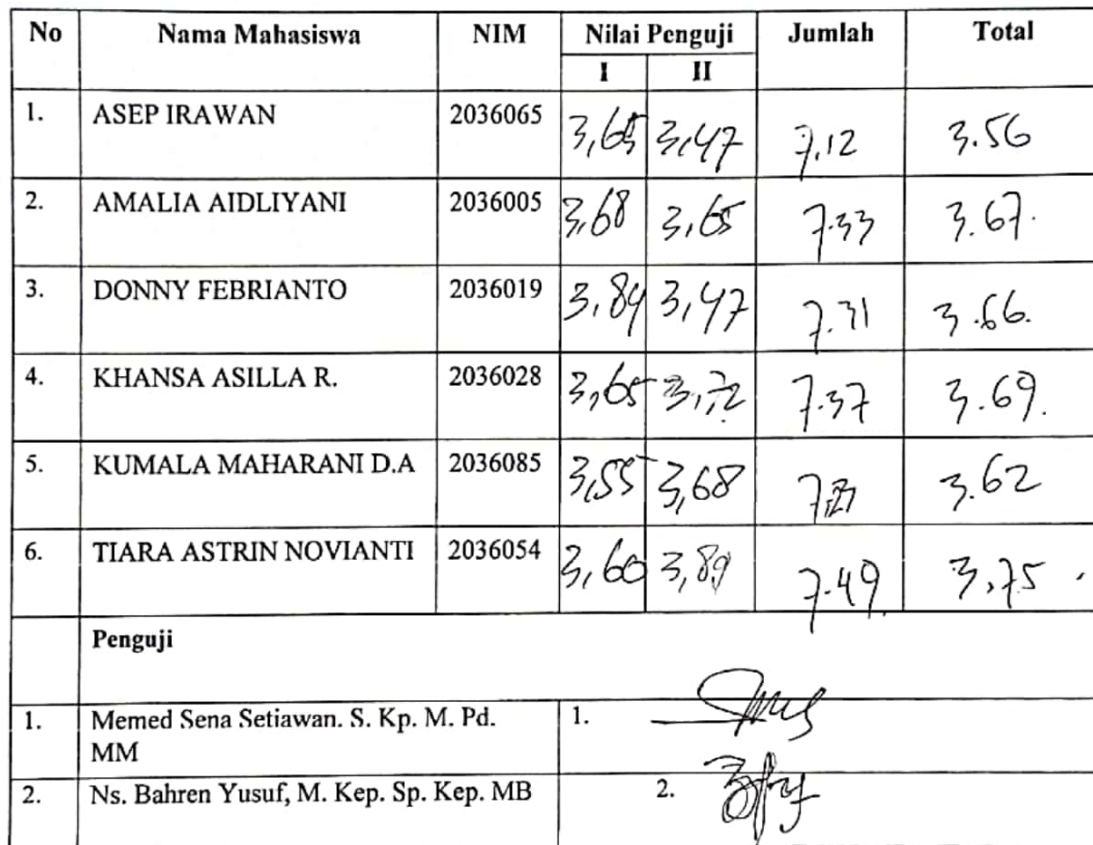 No Nama Mahasiswa NIM Nilai Penguji Jumlah Total
I II
1. ASEP IRAWAN 2036065 3,65 3,47 7,12 3.56
2. AMALIA AIDLIYANI 2036005 3,68 3,65 7.33 3.67.
3. DONNY FEBRIANTO 2036019 3,84 3,47 7.31 3.66.
4. KHANSA ASILLA R. 2036028 3,65 3,72 7.37 3.69.
5. KUMALA MAHARANI D.A 2036085 3,55 3,68 3.62
6. TIARA ASTRIN NOVIANTI 2036054 3,60 3,89 7.49 3,75
Penguji
1. Memed Sena Setiawan. S. Kp. M. Pd. 1.
MM
2. Ns. Bahren Yusuf, M. Kep. Sp. Kep. MB 2.